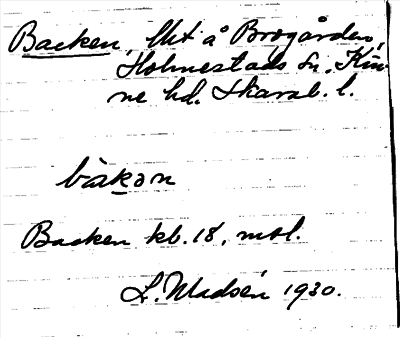 Backen, lht å Brogården,
Holmestads sn, Kin-
ne hd. Skarab. l.
bàkən
Backen kb. 18, mtl.
L. Madsén 1930.